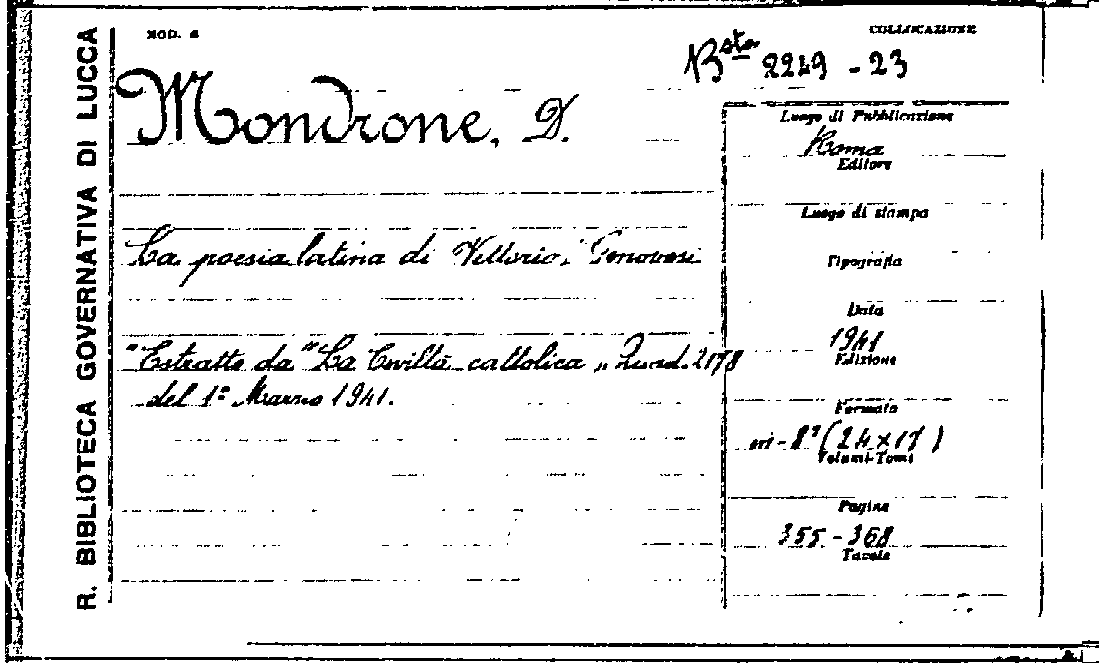 R. BIBLIOTECA GOVERNATIVA DI LUCCA
MOD. 2
COLLOCAZIONE
Bsta 2249 - 23
Mondrone, D.
La poesia latina di Vittorio Genovesi
"Estratto da "La Civiltà cattolica" Quad. 2178
del 1° Marzo 1941.
Luogo di Pubblicazione
Roma
Editore
Luogo di stampa
Tipografia
Data
1941
Edizione
Formato
in-8° (24 x 17)
Volumi-Tomi
Pagine
355 - 368
Tavole